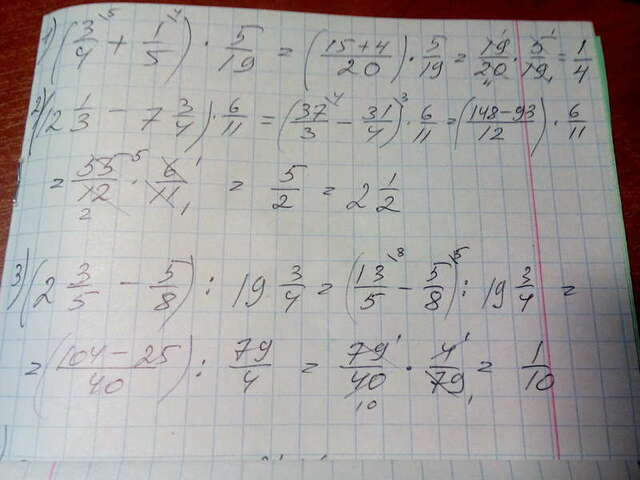 1) (3/4 ⁵ + 1/5 ⁴) · 5/19 = ((15+4)/20) · 5/19 = 19/20 ¹₄ · 5/19 ¹₁ = 1/4
2) (12 1/3 − 7 3/4) · 6/11 = (37/3 ⁴ − 31/4 ³) · 6/11 = ((148−93)/12) · 6/11
= 55/12 ⁵₂ · 6/11 ¹₁ = 5/2 = 2 1/2
3) (2 3/5 − 5/8) : 19 3/4 = (13/5 ⁸ − 5/8 ⁵) : 19 3/4 =
= ((104−25)/40) : 79/4 = 79/40 ¹₁₀ · 4/79 ¹₁ = 1/10